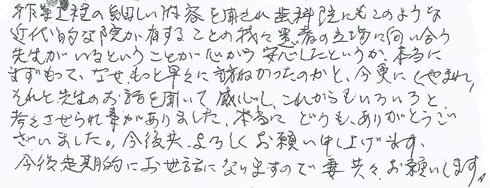 作業工程の細しい内容を聞され歯科院にもこのような
近代的な院が有することの我々患者の立場に向い合う
先生がいるということが心から安心したというか、本当に
まずもって、なぜもっと早々に訪ねなかったのかと、今更にくやまれ、
それと先生のお話を聞いて感心し、これからもいろいろと
考えさせられ事がありました、本当にどうもありがとうご
ざいました。今後共、よろしくお願い申し上げます。
今後定期的にお世話になりますので妻共々、お願いします。